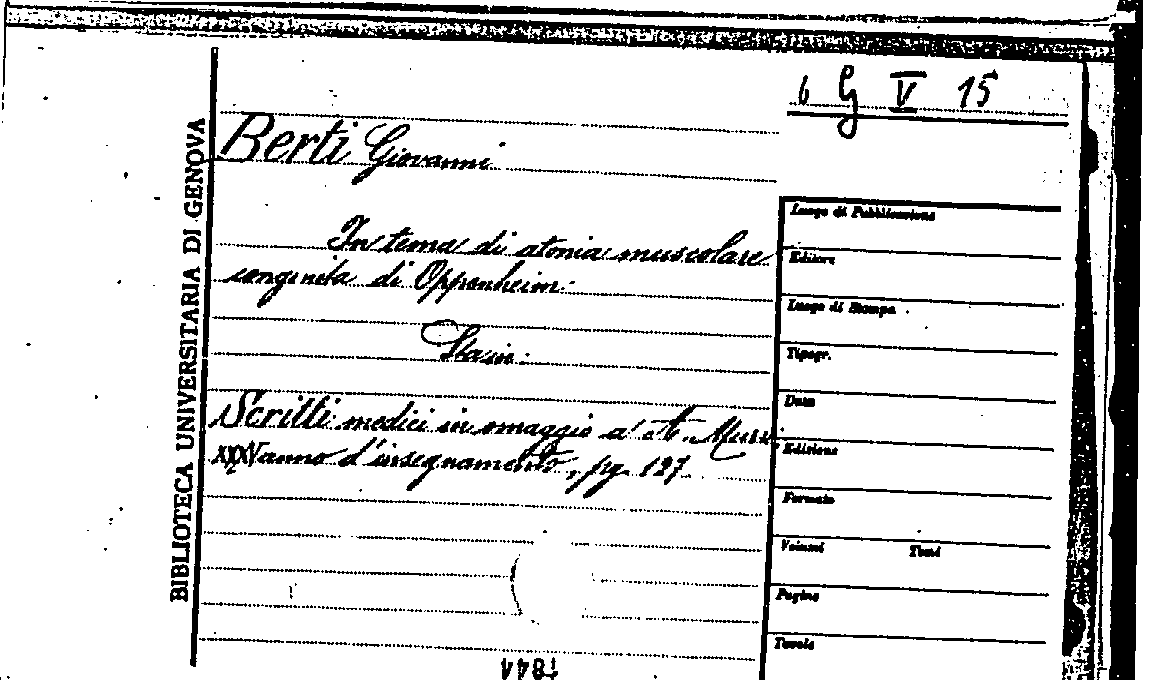 6 G V 15
BIBLIOTECA UNIVERSITARIA DI GENOVA
Berti Giovanni
In tema di atonia muscolare
congenita di Oppenheim.
Sta in:
Scritti medici in omaggio a A. Murri
XXXV anno d'insegnamento, pg. 127
Luogo di Pubblicazione
Editore
Luogo di Stampa
Tipogr.
Data
Edizione
Formato
Volumi Tomi
Pagine
Tavole
1844